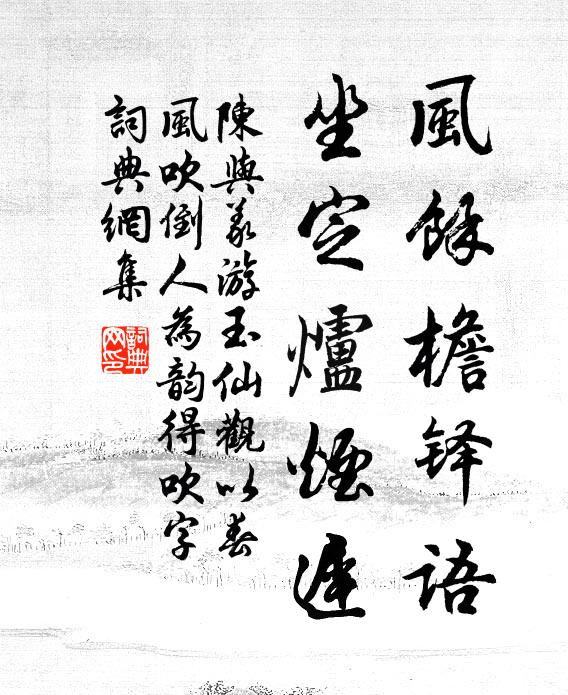 風餘檐铎語
坐定爐煙遲
陳與義游玉仙觀以春
風吹倒人為韵得吹字
詞典網集
詞典网印